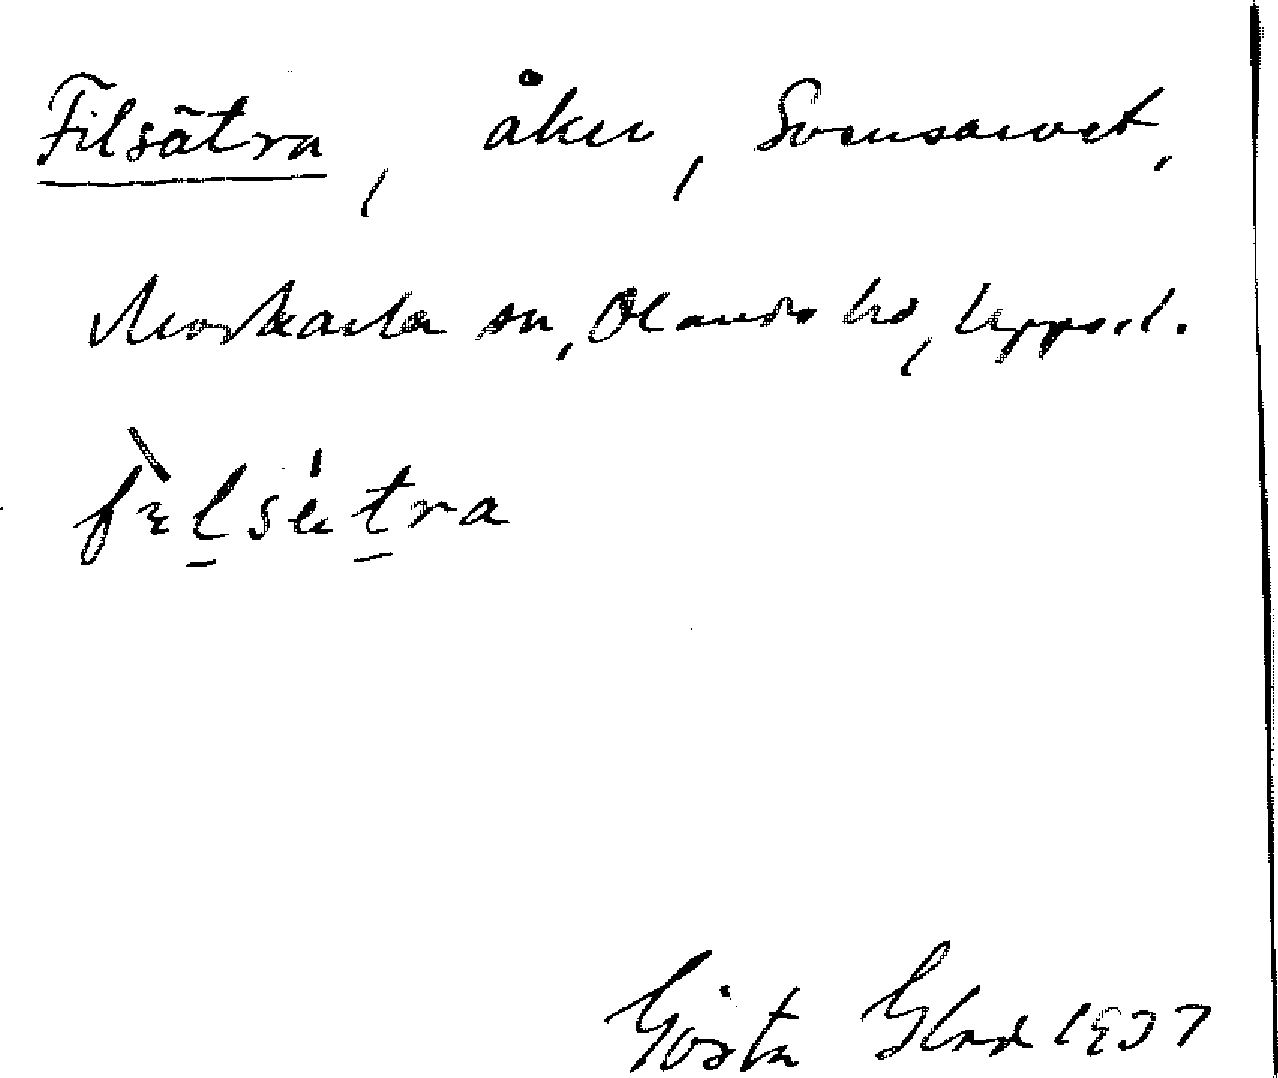 Filsätra, åker, Svensarvet,
Morkarla sn, Olands hd, Uppsal.
fɪ̀lsätra
Gösta Glad 1937